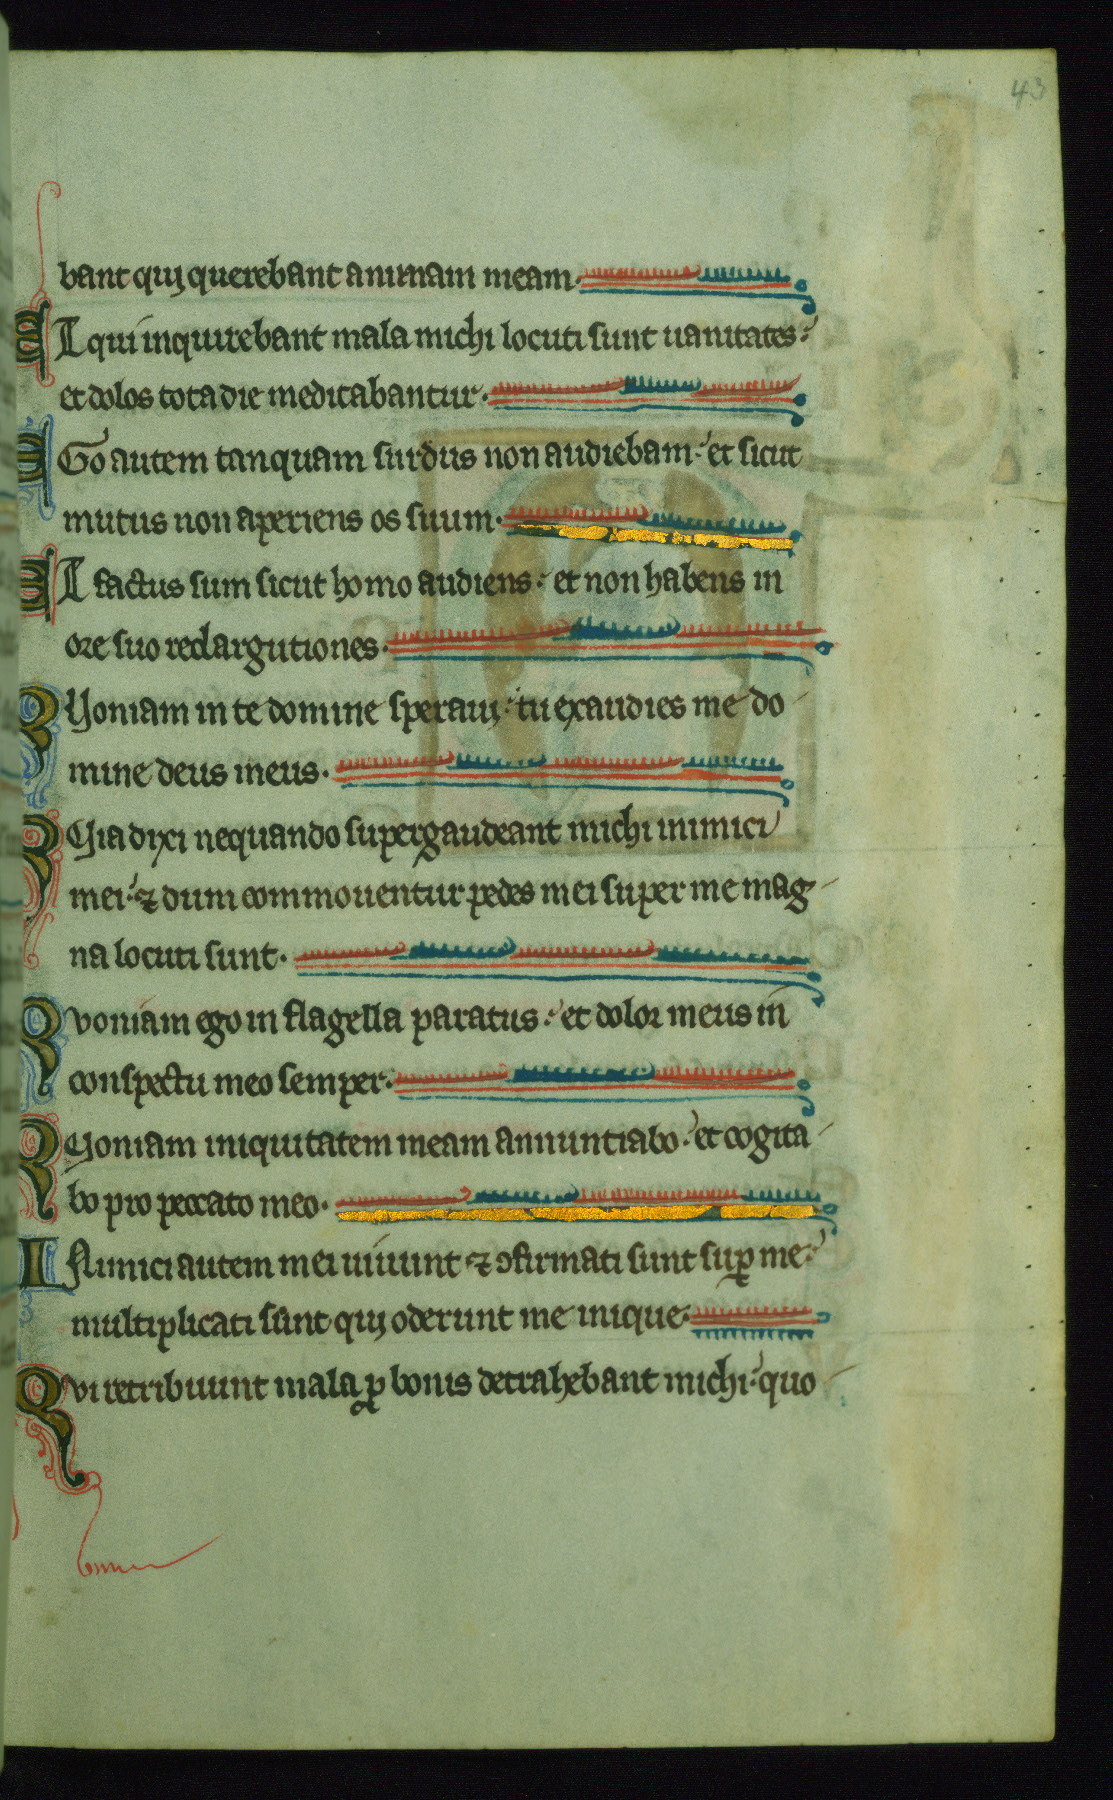 43
bant qui querebant animam meam.
ET qui inquirebant mala michi locuti sunt uanitates:
et dolos tota die meditabantur.
EGo autem tanquam surdus non audiebam: et sicut
mutus non aperiens os suum.
ET factus sum sicut homo audiens: et non habens in
ore suo redargutiones.
QUoniam in te domine speraui: tu exaudies me do
mine deus meus.
QUia dixi nequando supergaudeant michi inimici
mei: ⁊ dum commouentur pedes mei super me mag
na locuti sunt.
Quoniam ego in flagella paratus: et dolor meus in
conspectu meo semper.
QUoniam iniquitatem meam annuntiabo: et cogita
bo pro peccato meo.
INimici autem mei uiuunt ⁊ ɔfirmati sunt suꝑ me:
multiplicati sunt qui oderunt me inique.
Qui retribuunt mala ꝓ bonis detrahebant michi: quo